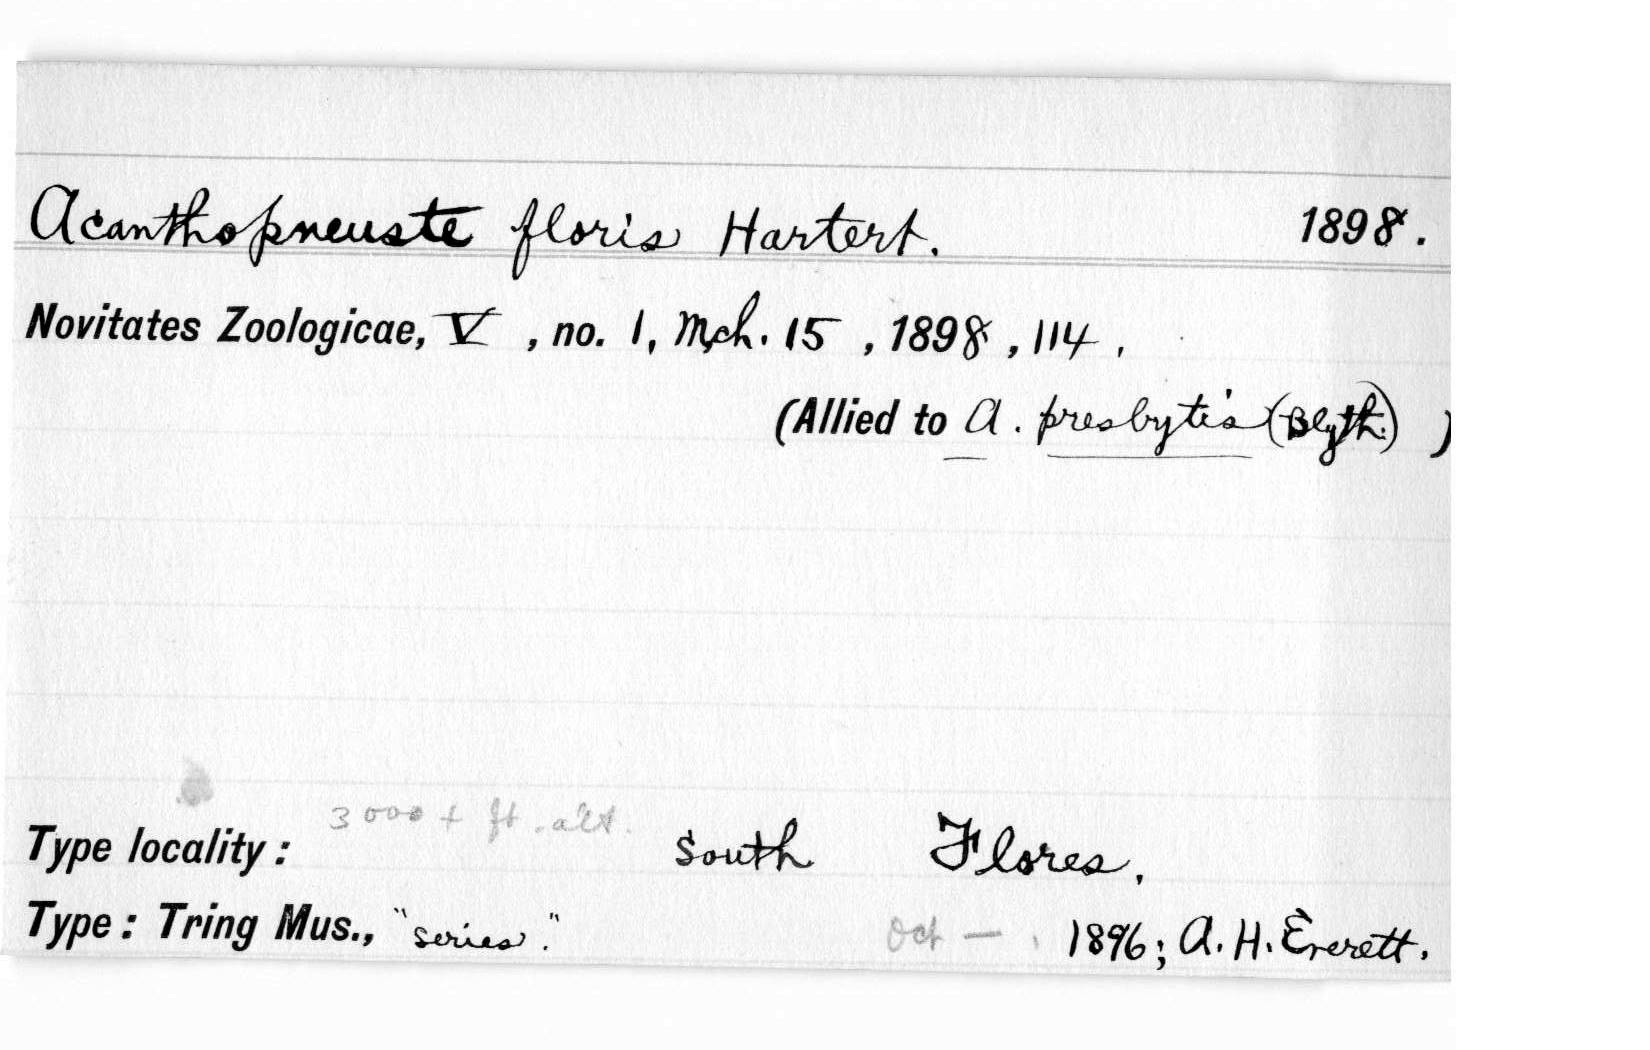 Acanthopneuste floris Hartert. 1898.
Novitates Zoologicae, V , no. 1, Mch. 15 , 1898 , 114 .
(Allied to A. presbytis (Blyth.) )
3000 + ft. alt.
Type locality : South Flores.
Type : Tring Mus., "series". Oct — . 1896; A. H. Everett.